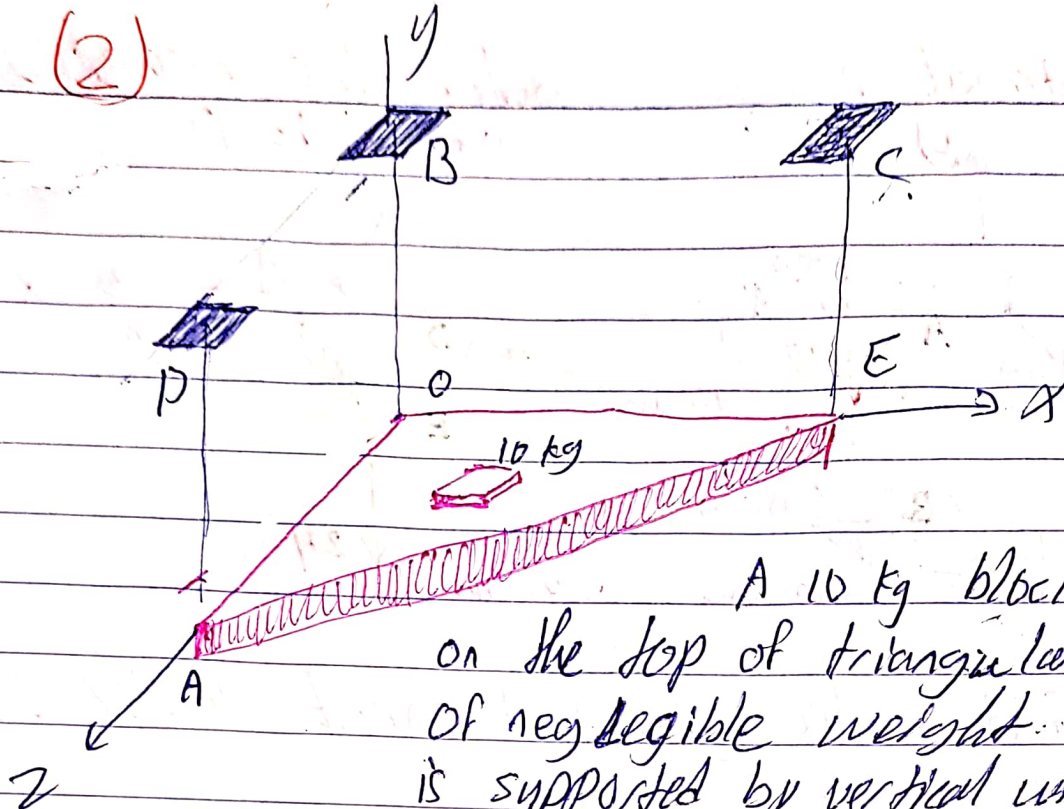 (2)
y
B
C
D
O
E
x
10 kg
A
z
A 10 kg bloc
on the top of triangula
of neglegible weight.
is supported by vertical